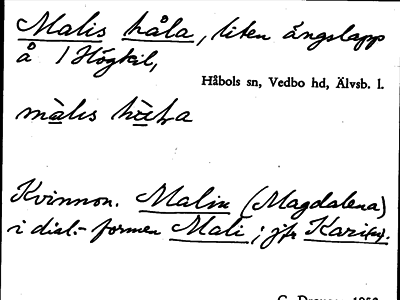 Malis håla, liten ängslapp
å 1 Högkil,
Håbols sn, Vedbo hd, Älvsb. l.
màlis
Kvinnon. Malin (Magdalena)
i dial.-formen Mali; jfr Kari(n).